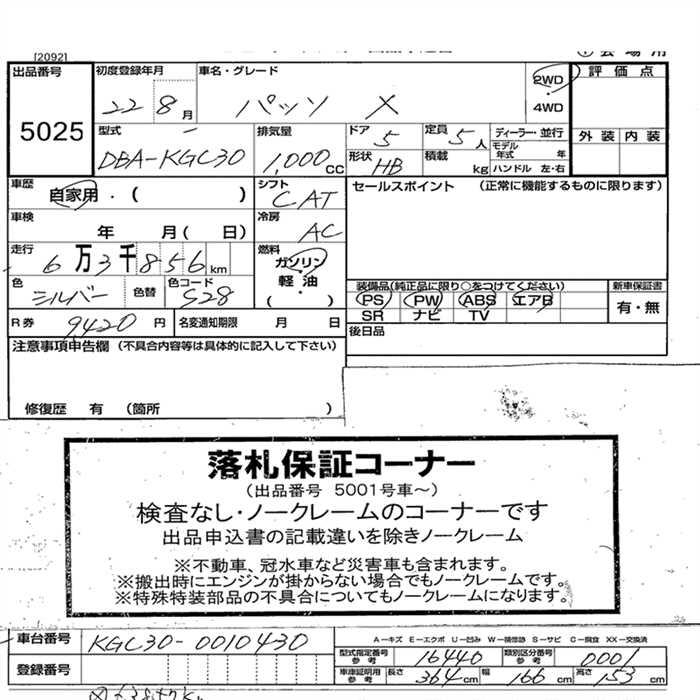 [2092]
会場用
出品番号 5025
初度登録年月 22 8月
車名・グレード パッソ X
2WD
4WD
評価点
外装 内装
型式 DBA-KGC30
排気量 1,000cc
ドア 5
定員 5人
形状 HB
積載 kg
ディーラー・並行
モデル年式 年
ハンドル 左・右
車歴 自家用・( )
シフト CAT
セールスポイント (正常に機能するものに限ります)
車検 年 月( 日)
冷房 AC
走行 6万3千856km
燃料 ガソリン・軽油・( )
色 シルバー 色替 色コード S28
装備品(純正品に限り○をつけてください)
PS PW ABS エアB
SR ナビ TV
新車保証書 有・無
R券 9420円 名変通知期限 月 日
後日品
注意事項申告欄 (不具合内容等は具体的に記入して下さい)
修復歴 有 (箇所 )
落札保証コーナー
(出品番号 5001号車~)
検査なし・ノークレームのコーナーです
出品申込書の記載違いを除きノークレーム
※不動車、冠水車など災害車も含まれます。
※搬出時にエンジンが掛からない場合でもノークレームです。
※特殊特装部品の不具合についてもノークレームになります。
車台番号 KGC30-0010430
A-キズ E-エクボ U-凹み W-補修跡 S-サビ C-腐食 XX-交換済
型式指定番号参考 16440 類別区分番号参考 0001
登録番号
車庫証明用参考 長さ 364cm 幅 166cm 高さ 153cm